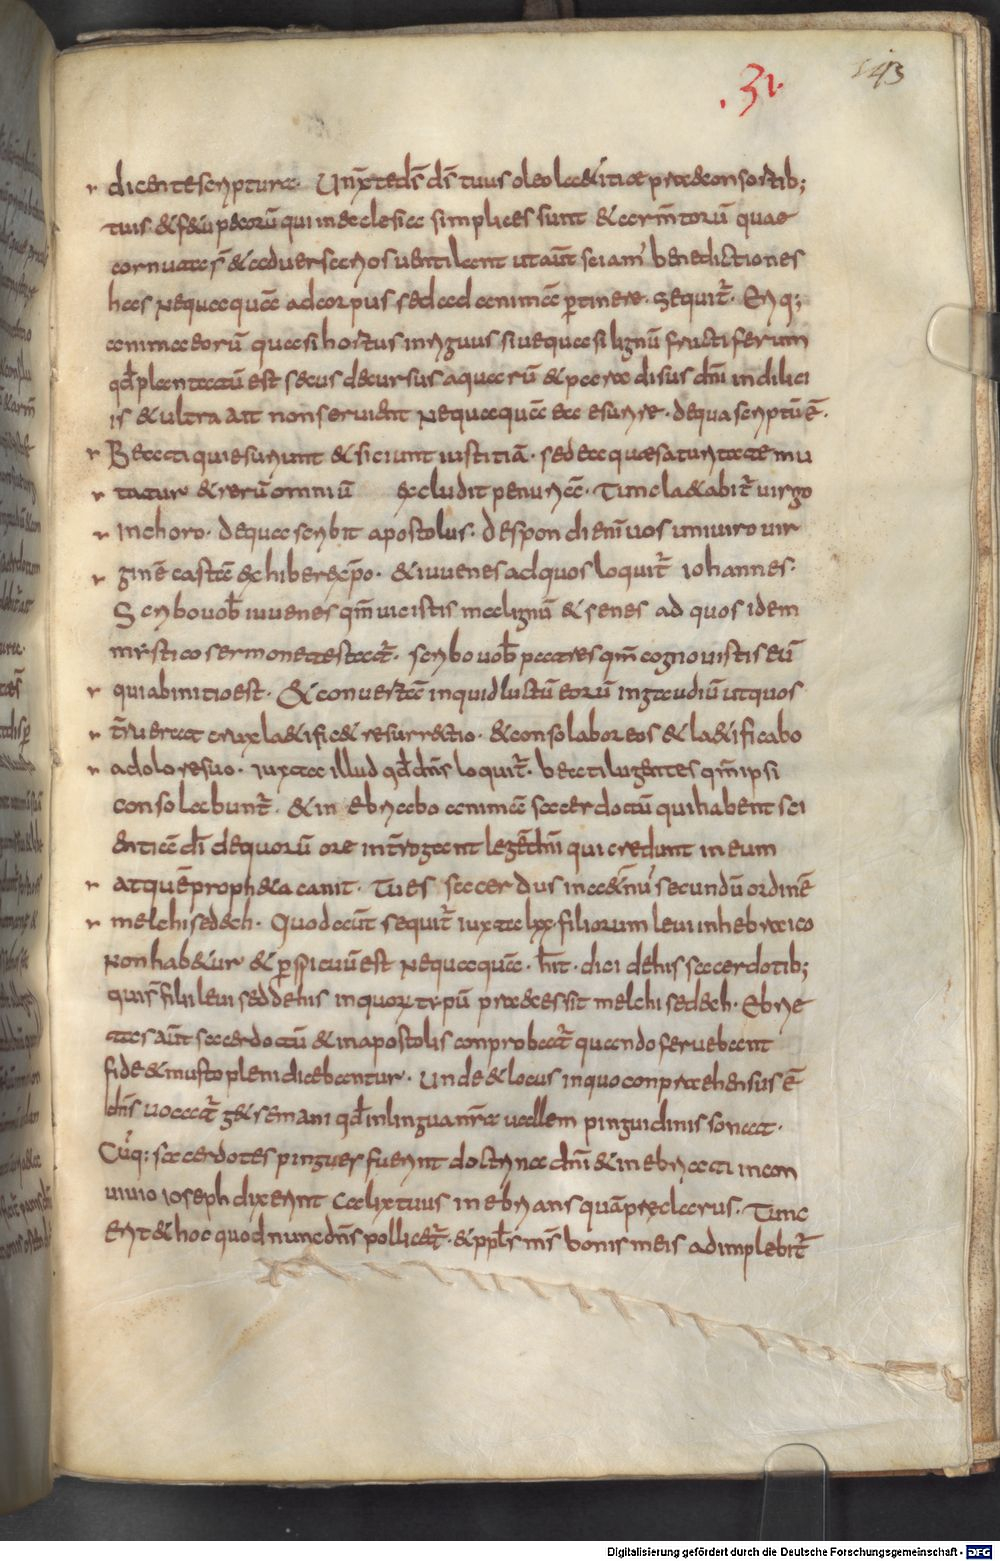 .31. 143
dicente scriptura. Unxit te ds̄ ds̄ tuus oleo laetitiae prae consortib;
tuis. & fetu pecorū qui in aecclesia simplices sunt & armtorū quae
cornuta s̄ & aduersarios uentilant ut aūt sciam' benedictiones
has nequaquā ad corpus sed ad animā ptinere. Sequit̄. Eritq;
anima eorū quasi hortus inriguus siue quasi lignū fructiferum
qd̄ plantatū est secus decursus aquarū & paradisus dn̄i in dilici
is & ultra ait non seruient nequaquā ea esurire. de qua scriptū ē.
Beati qui esuriunt & siciunt iustitiā. sed ea quae saturitate mu
tatur & rerū omniū excludit penuriā. Tunc laetabit̄ uirgo
in choro. de qua scribit apostolus. Despondi enī uos uni uiro uir
ginē castā exhibere xp̄o. & iuuenes ad quos loquit̄ iohannes.
Scribo uob̄ iuuenes qm̄ uicistis malignū & senes ad quos idem
mistico sermone testat̄. scribo uob̄ patres qm̄ cognouistis eū
qui ab initio est. & conuertā inquid luctū eorū in gaudiū ut quos
t̄ruerat crux laetificet resurrectio. & consolabor eos & laetificabo
a dolore suo. iuxta illud qd̄ dn̄s loquit̄. beati lugentes qm̄ ipsi
consolabunt̄. & inebriabo animā sacerdotū qui habent sci
entiā dī de quorū ore int̄rogant legē dn̄i qui credunt in eum
atquē propheta canit. Tu es sacerdus in aet̄nū secundū ordinē
melchisedech. Quod aūt sequit̄ iuxta lxx. filiorum leui in hebraico
non habetur & pspicuū est nequaquā. h̄it. dici de his sacerdotib;
qui s̄ filii leui sed de his in quor typū praecessit melchisedech. Ebrie
tas aūt sacerdotū & in apostolis conprobat̄ quando feruebant
fide & musto pleni dicebantur. Unde & locus in quo conpraehensus ē
dn̄s uocat̄ getsemani qd̄ in lingua nr̄a uallem pinguidinis sonat.
Cūq: sacerdotes pingues fuerint doctrina dn̄i & inebriati in con
uiuio ioseph dixerint Calix tuus inebrians quā praeclarus. Tunc
erit & hoc quod nunc dn̄s pollicet̄. & ppl̄s ms̄ bonis meis adimplebit̄
Digitalisierung gefördert durch die Deutsche Forschungsgemeinschaft - DFG